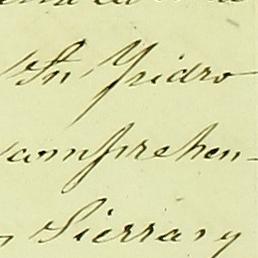 Sn Ysidro
comprehen-
Sierras y